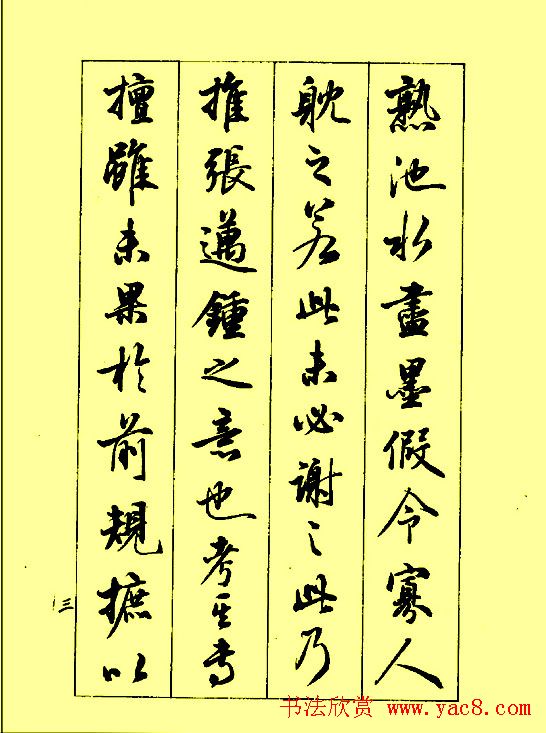 熟池水盡墨假令寡人
躭之若此未必謝之此乃
推張邁鍾之意也考其專
擅雖未果於前規摭以
三
书法欣赏 www.yac8.com